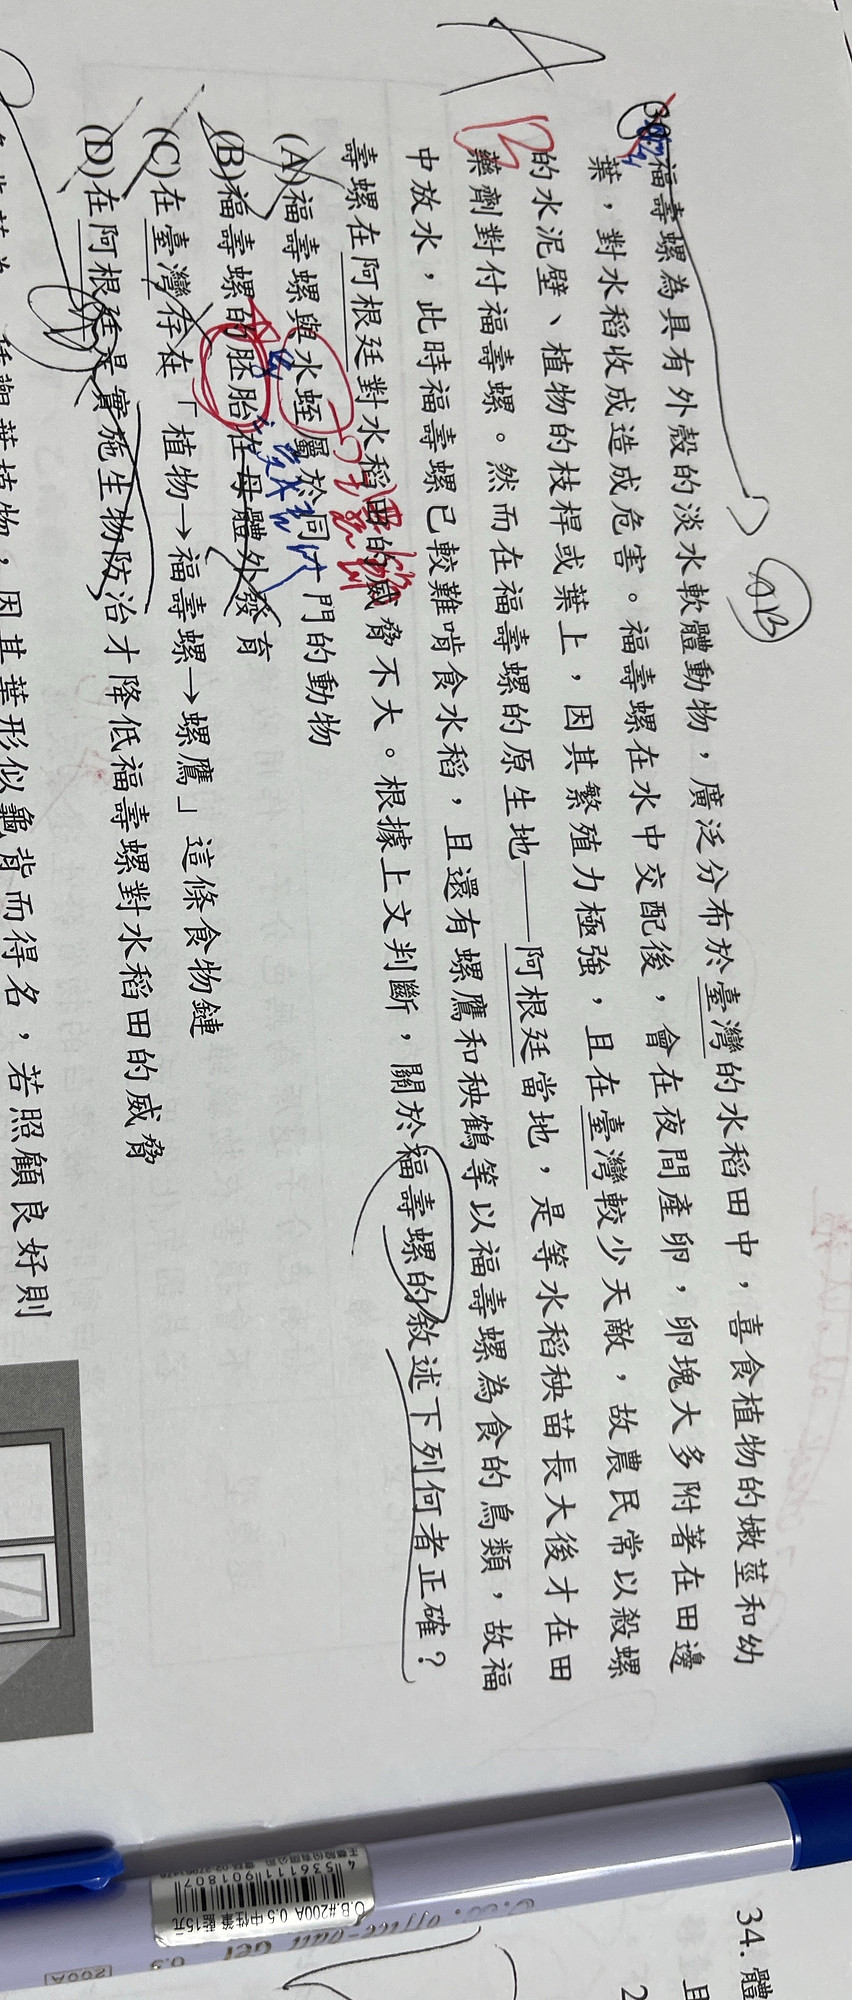 福壽螺為具有外殼的淡水軟體動物，廣泛分布於臺灣的水稻田中，喜食植物的嫩莖和幼
葉，對水稻收成造成危害。福壽螺在水中交配後，會在夜間產卵，卵塊大多附著在田邊
的水泥壁、植物的枝桿或葉上，因其繁殖力極強，且在臺灣較少天敵，故農民常以殺螺
藥劑對付福壽螺。然而在福壽螺的原生地——阿根廷當地，是等水稻秧苗長大後才在田
中放水，此時福壽螺已較難啃食水稻，且還有螺鷹和秧鶴等以福壽螺為食的鳥類，故福
壽螺在阿根廷對水稻田的威脅不大。根據上文判斷，關於福壽螺的敘述下列何者正確？
(A)福壽螺與水蛭屬於同一門的動物
(B)福壽螺的胚胎在母體外發育
(C)在臺灣存在「植物→福壽螺→螺鷹」這條食物鏈
(D)在阿根廷是實施生物防治才降低福壽螺對水稻田的威脅
種觀葉植物，因其葉形似龜背而得名，若照顧良好則
AB
34. 體
且
2
O.B.#200A 0.5 中性筆 藍 15元
4 536111 901807
200A